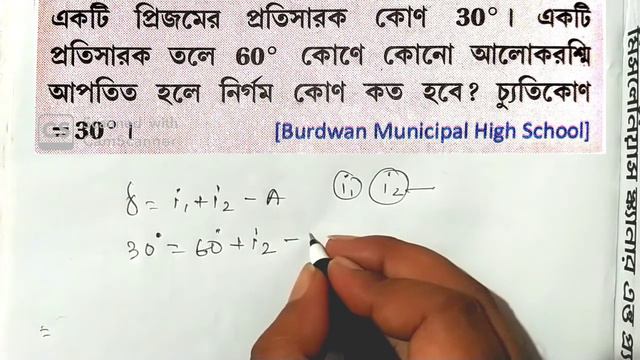 একটি প্রিজমের প্রতিসারক কোণ 30°। একটি
প্রতিসারক তলে 60° কোণে কোনো আলোকরশ্মি
আপতিত হলে নির্গম কোণ কত হবে? চ্যুতিকোণ
= 30°। [Burdwan Municipal High School]
δ = i₁ + i₂ − A i₁ i₂
30° = 60° + i₂ −
=